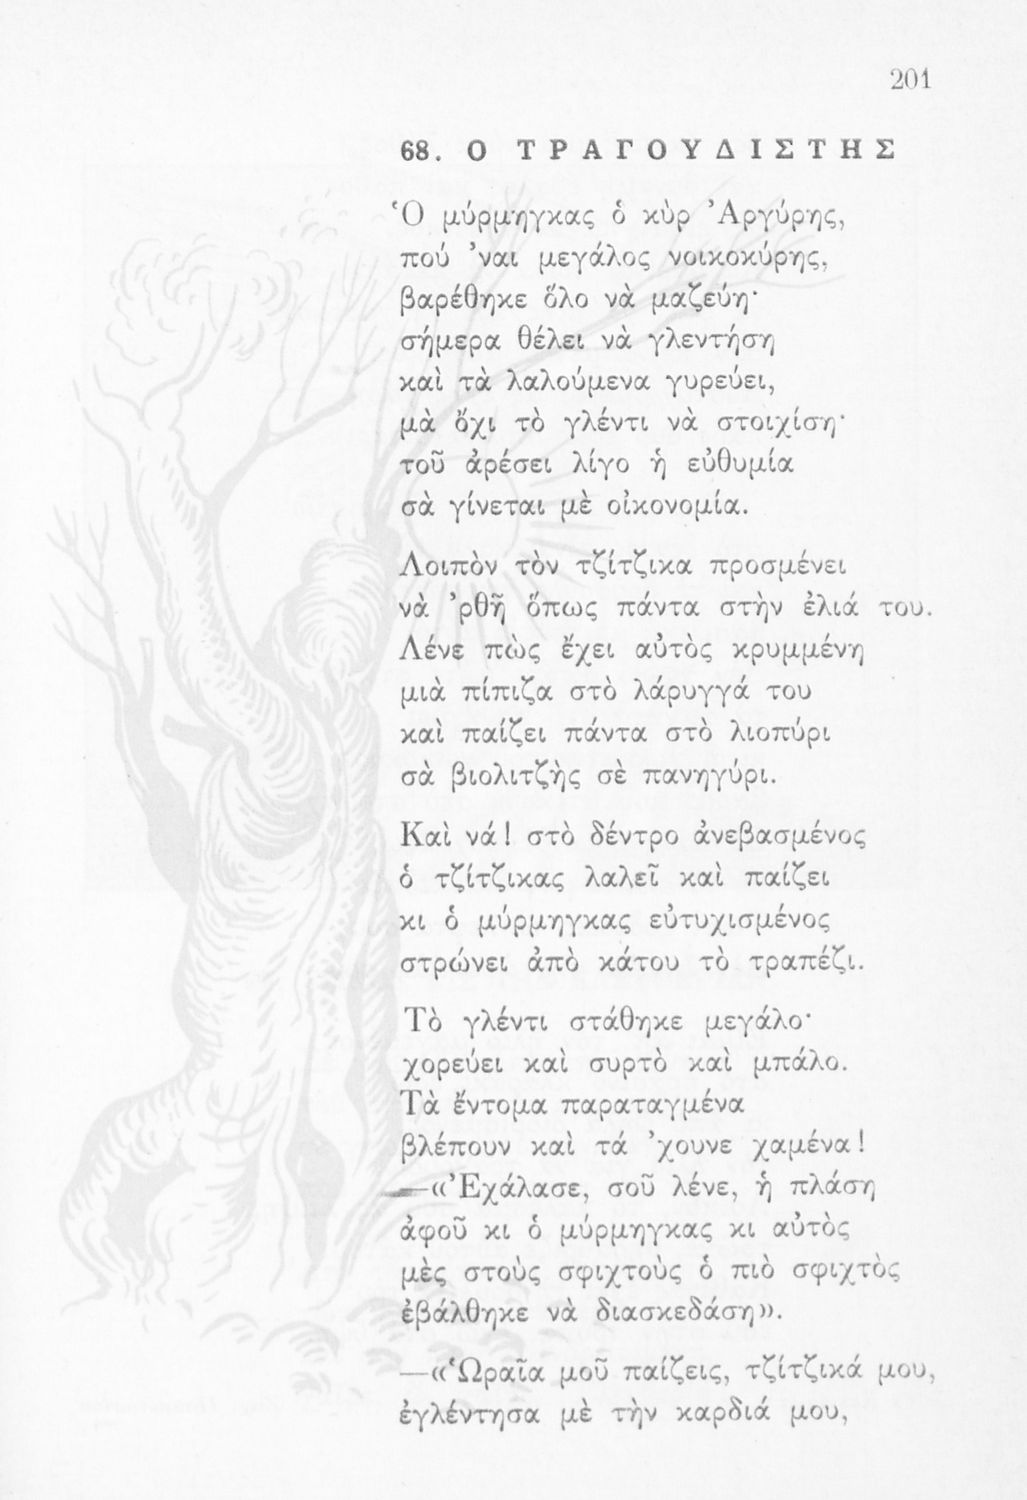 201
68. Ο ΤΡΑΓΟΥΔΙΣΤΗΣ
Ὁ μύρμηγκας ὁ κὺρ Ἀργύρης,
πού 'ναι μεγάλος νοικοκύρης,
βαρέθηκε ὅλο νὰ μαζεύη·
σήμερα θέλει νὰ γλεντήση
καὶ τὰ λαλούμενα γυρεύει,
μὰ ὄχι τὸ γλέντι νὰ στοιχίση·
τοῦ ἀρέσει λίγο ἡ εὐθυμία
σὰ γίνεται μὲ οἰκονομία.
Λοιπὸν τὸν τζίτζικα προσμένει
νὰ 'ρθῆ ὅπως πάντα στὴν ἐλιά του.
Λένε πὼς ἔχει αὐτὸς κρυμμένη
μιὰ πίπιζα στὸ λάρυγγά του
καὶ παίζει πάντα στὸ λιοπύρι
σὰ βιολιτζὴς σὲ πανηγύρι.
Καὶ νά! στὸ δέντρο ἀνεβασμένος
ὁ τζίτζικας λαλεῖ καὶ παίζει
κι ὁ μύρμηγκας εὐτυχισμένος
στρώνει ἀπὸ κάτου τὸ τραπέζι.
Τὸ γλέντι στάθηκε μεγάλο·
χορεύει καὶ συρτὸ καὶ μπάλο.
Τὰ ἔντομα παραταγμένα
βλέπουν καὶ τά 'χουνε χαμένα!
—«Ἐχάλασε, σοῦ λένε, ἡ πλάση
ἀφοῦ κι ὁ μύρμηγκας κι αὐτὸς
μὲς στοὺς σφιχτοὺς ὁ πιὸ σφιχτὸς
ἐβάλθηκε νὰ διασκεδάση».
—«Ὡραῖα μοῦ παίζεις, τζίτζικά μου,
ἐγλέντησα μὲ τὴν καρδιά μου,